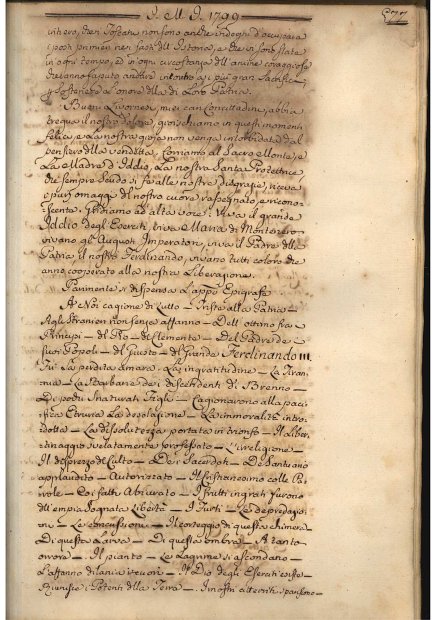 J. M. J. 1799
intiero, che i Toscani non sono anche indegni d'occupare
i posti primieri nei fasti della Istoria, e che vi sono state
in ogni tempo, ed in ogni circostanza dell'anime coraggiose
che anno saputo andare incontro ai più gran Sacrifici
p sostenere l'onore della di Loro Patria.
Buoni Livornesi, miei cari Concittadini, abbia
tregua il nostro dolore, gioischiamo in questi momenti
felici, e la nostra gioja non venga intorbidata dal
pensiero della vendetta, Corriamo al Sacro Monte, e
La Madre d'Iddio, La nostra Santa Protettrice,
che sempre scudo si fè alle nostre disgrazie, riceva
i puri omaggi del nostro cuore rassegnato, e ricono-
scente. Gridiamo ad alta voce: viva il grande
Iddio degli Eserciti, viva Maria di Montenero
vivano gli Augusti Imperatori, viva il Padre della
Patria il nostro Ferdinando, vivano tutti coloro che
anno cooperato alla nostra Liberazione.
Parimente si dispensa L'app.e Epigrafe
A Noi cagione di Lutto — Triste alla Patria —
Agli Stranieri non senza affanno — Dell' ottimo fra i
Principi — del Pio — del Clemente — Del Padre de
suoi Popoli — del Giusto — del Grande Ferdinando III.
Fù La perdita amara. La ingratitudine — La Tiran-
nia — La Barbarie dei discendenti di Brenno —
Di pochi Snaturati Figli — Cagionarono alla paci-
fica Etruria La desolazione — La immoralità intro-
dotta — La dissolutezza portata in trionfo — Il Liber-
tinaggio svelatamente professato — L'irreligione —
Il disprezzo del Culto — Dei Sacerdoti — De Santi ano
applaudito — Autorizzato — Il Cristianesimo colle Pi-
stole — Coi fatti Abiurato — I frutti ingrati furono
dell'empia Sognata Libertà — I Furti — Le depredazio-
ni — Le concussioni — Il corteggio di questa chimera
Di questa Larva — Di questa ombra — A tanto
orrore — Il pianto — Le Lagrime si ascondano —
L'affanno dilania i cuori — Il Dio degli Eserciti esiste
Riunisce i Potenti della Terra — I nostri atterriti spariscono